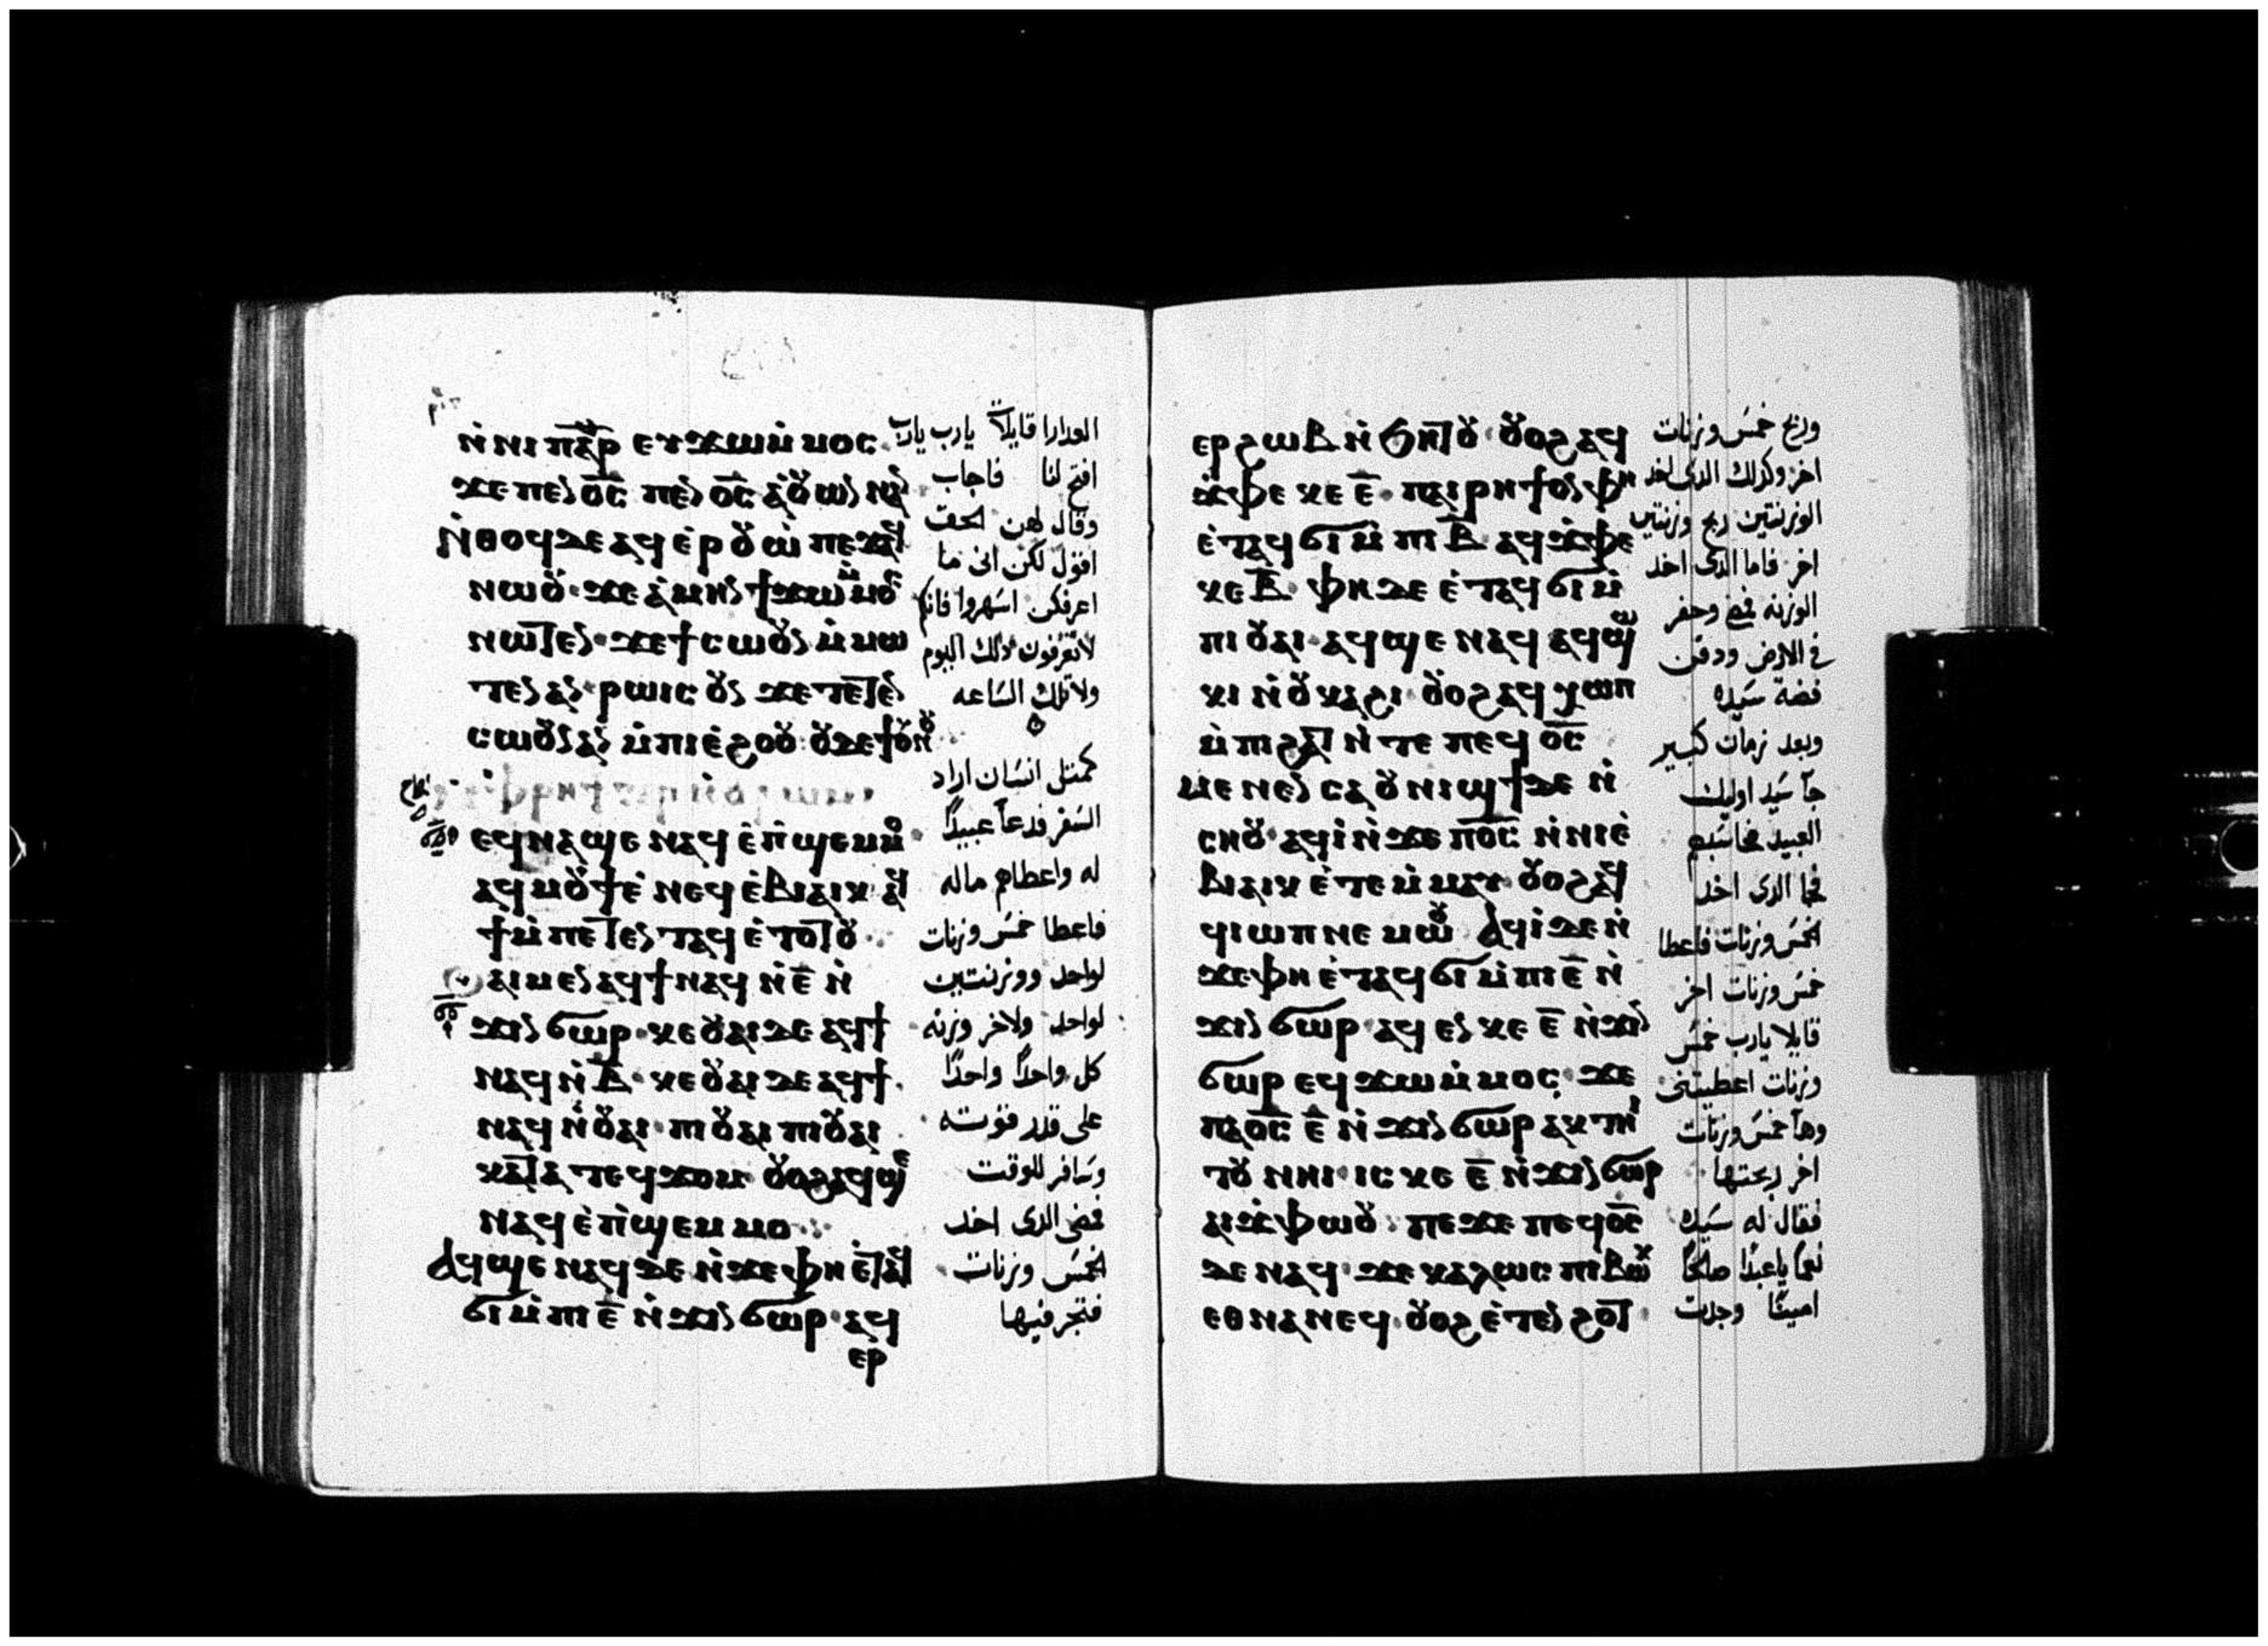 ⲛ̀ⲛⲓ ⲡⲁⲣ ⲉⲩϫⲱ ⲙ̀ⲙⲟⲥ
ϫⲉ ⲡⲉⲛⲟ̅ⲥ̅ ⲡⲉⲛⲟ̅ⲥ̅ ⲁ̀ⲟⲩⲱⲛ ⲛⲁⲛ
ⲛ̀ⲑⲟϥ ⲇⲉ ⲁϥⲉ̀ⲣⲟⲩⲱ̀ ⲡⲉϫⲁϥ
ⲛⲱⲟⲩ ϫⲉ ⲁ̀ⲙⲏⲛ ϯϫⲱ ⲙ̀ⲙⲟⲥ
ⲛⲱⲧⲉⲛ ϫⲉ ϯⲥⲱⲟⲩⲛ ⲙ̀ⲙⲱ
ⲧⲉⲛ ⲁⲛ ⲣⲱⲓⲥ ⲟⲩⲛ ϫⲉ ⲧⲉⲧⲉⲛ
ⲥⲱⲟⲩⲛ ⲁⲛ ⲙ̀ⲡⲓⲉ̀ϩⲟⲟⲩ ⲟⲩⲇⲉ ϯⲟⲩⲛⲟⲩ
ⲙ̀ⲫⲣⲏϯ ⲅⲁⲣ ⲛ̀ⲟⲩⲣⲱⲙⲓ
ⲉϥⲛⲁϣⲉ ⲛⲁϥ ⲉ̀ⲡ̀ϣⲉⲙⲙⲟ
ⲁϥⲙⲟⲩϯ ⲉ̀ⲛⲉϥⲉ̀ⲃⲓⲁⲓⲕ ⲁϥ
ϯ ⲙ̀ⲡⲉⲧⲉⲛⲧⲁϥ ⲉ̀ⲧⲟⲧⲟⲩ
ⲁⲓⲙⲉⲛ ⲁϥϯ ⲛⲁϥ ⲛ̀ⲉ̅ ⲛ̀
ϫⲓⲛϭⲱⲣ ⲕⲉⲟⲩⲁⲓ ⲇⲉ ⲁϥϯ
ⲛⲁϥ ⲛ̀ⲃ̅ ⲕⲉⲟⲩⲁⲓ ⲇⲉ ⲁϥϯ
ⲛⲁϥ ⲛ̀ⲟⲩⲁⲓ ⲡⲓⲟⲩⲁⲓ ⲡⲓⲟⲩⲁⲓ
ⲕⲁⲧⲁ ⲧⲉϥϫⲟⲙ ⲟⲩⲟϩ ⲁϥϣⲉ
ⲛⲁϥ ⲉ̀ⲡ̀ϣⲉⲙⲙⲟ
ⲁϥϣⲉ ⲛⲁϥ ⲇⲉ ⲛ̀ϫⲉ ⲫⲏ ⲉ̀ⲧⲁϥ
ϭⲓ ⲙ̀ⲡⲓⲉ̅ ⲛ̀ϫⲓⲛϭⲱⲣ ⲁϥ
ⲉⲣ
العدارا قايلات يارب يارب
افتح لنا فاجاب
وقال لهن الحق
اقول لكن انى ما
اعرفكن اسهروا فانكم
لا تعرفون ذلك اليوم
ولا تلك الساعه
كمثل انسان اراد
السفر فدعا عبيدا
له واعطاهم ماله
فاعطا خمس وزنات
لواحد ووزنتين
لواحد ولاخر وزنه
كل واحدا واحدا
على قدر قوته
وسافر للوقت
فمضى الدى اخد
الخمس وزنات
فتجر فيها
ⲉⲣϩⲱⲃ ⲛ̀ϧⲏⲧⲟⲩ ⲟⲩⲟϩ ⲁϥ
ϫ̀ⲫⲉ ⲕⲉ ⲉ̅ ⲡⲁⲓⲣⲏϯ ⲟⲛ ⲫⲏ
ⲉ̀ⲧⲁϥϭⲓ ⲙ̀ⲡⲓⲃ̅ ⲁϥϫ̀ⲫⲉ
ⲕⲉⲃ̅ ⲫⲏ ⲇⲉ ⲉ̀ⲧⲁϥϭⲓ ⲙ̀
ⲡⲓⲟⲩⲁⲓ ⲁϥϣⲉ ⲛⲁϥ ⲁϥϣⲱ
ⲕⲓ ⲛ̀ⲟⲩⲕⲁϩⲓ ⲟⲩⲟϩ ⲁϥⲭⲱⲡ
ⲙ̀ⲡⲓϩⲁⲧ ⲛ̀ⲧⲉ ⲡⲉϥⲟ̅ⲥ̅
ⲙⲉⲛⲉⲛⲥⲁ ⲟⲩⲛⲓϣϯ ⲇⲉ ⲛ̀
ⲥⲏⲟⲩ ⲁϥⲓ̀ ⲛ̀ϫⲉ ⲡⲟ̅ⲥ̅ ⲛ̀ⲛⲓⲉ̀
ⲃⲓⲁⲓⲕ ⲉ̀ⲧⲉⲙ̀ⲙⲁⲩ ⲟⲩⲟϩ ⲁϥ
ϥⲓⲱⲡ ⲛⲉⲙⲱⲟⲩ ⲁϥⲓ̀ ⲇⲉ ⲛ̀
ϫⲉ ⲫⲏ ⲉ̀ⲧⲁϥϭⲓ ⲙ̀ⲡⲓⲉ̅ ⲛ̀
ϫⲓⲛϭⲱⲣ ⲁϥⲉⲛ ⲕⲉ ⲉ̅ ⲛ̀ϫⲓⲛ
ϭⲱⲣ ⲉϥϫⲱ ⲙ̀ⲙⲟⲥ ϫⲉ
ⲡⲁⲟ̅ⲥ̅ ⲉ̅ ⲛ̀ϫⲓⲛϭⲱⲣ ⲁⲕⲧⲏⲓ
ⲧⲟⲩ ⲛⲏⲓ ⲓⲥ ⲕⲉ ⲉ̅ ⲛ̀ϫⲓⲛϭⲱⲣ
ⲁⲓϫ̀ⲫⲱⲟⲩ ⲡⲉϫⲉ ⲡⲉϥⲟ̅ⲥ̅
ⲇⲉ ⲛⲁϥ ϫⲉ ⲕⲁⲗⲱⲥ ⲡⲓⲃⲱⲕ
ⲉⲑⲛⲁⲛⲉϥ ⲟⲩⲟϩ ⲉ̀ⲧⲉⲛϩⲟⲧ
وربح خمس وزنات
اخر وكذلك الدى اخد
الوزنتين ربح وزنتين
اخر فاما الدى اخد
الوزنه فمضى وحفر
فى الارض ودفن
فضة سيده
وبعد زمان كبير
جا سيد اوليك
العبيد فحاسبهم
فجا الدى اخد
الخمس وزنات فاعطا
خمس وزنات اخر
قايلا يارب خمس
وزنات اعطيتنى
وها خمس وزنات
اخر ربحتها
فقال له سيده
نعما ياعبدا صالحا
امينا وجدت